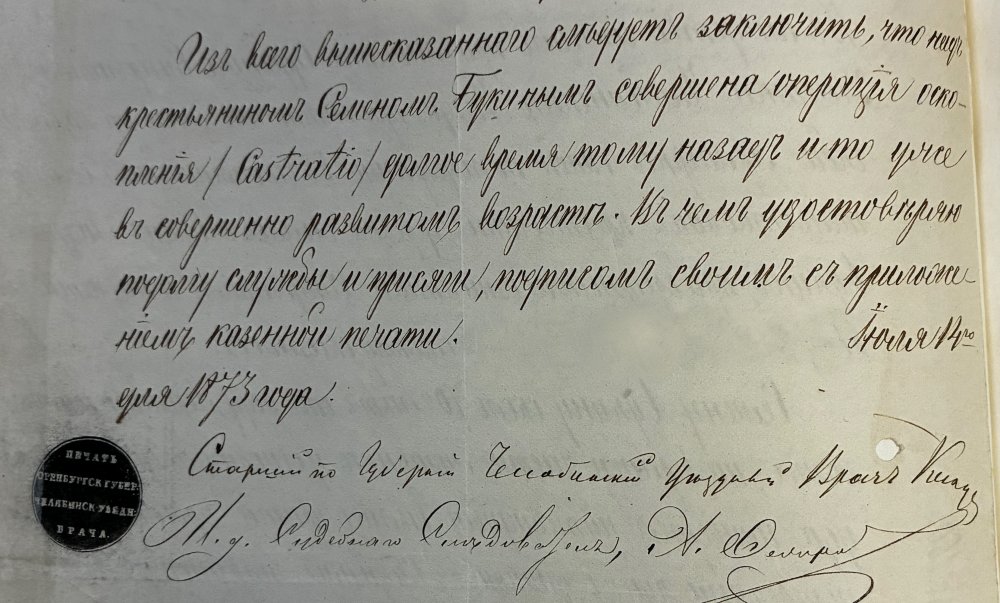 Изъ всего вышесказаннаго слѣдуетъ заключить, что надъ
крестьяниномъ Семеномъ Букинымъ совершена операція оско-
пленія / Castratio / долгое время тому назадъ и то уже
въ совершенно развитомъ возрастѣ. Въ чемъ удостовѣряю
по долгу службы и присяги, подписомъ своимъ съ приложе-
ніемъ казенной печати. Іюля 14го
дня 1873 года.
Старшій по Губерніи Челябинскій Уѣздный Врачъ
И. д. Судебнаго Слѣдователь, А.
ПЕЧАТЬ
ОРЕНБУРГСК ГУБЕР.
ЧЕЛЯБИНСК УѢЗДН:
ВРАЧА.